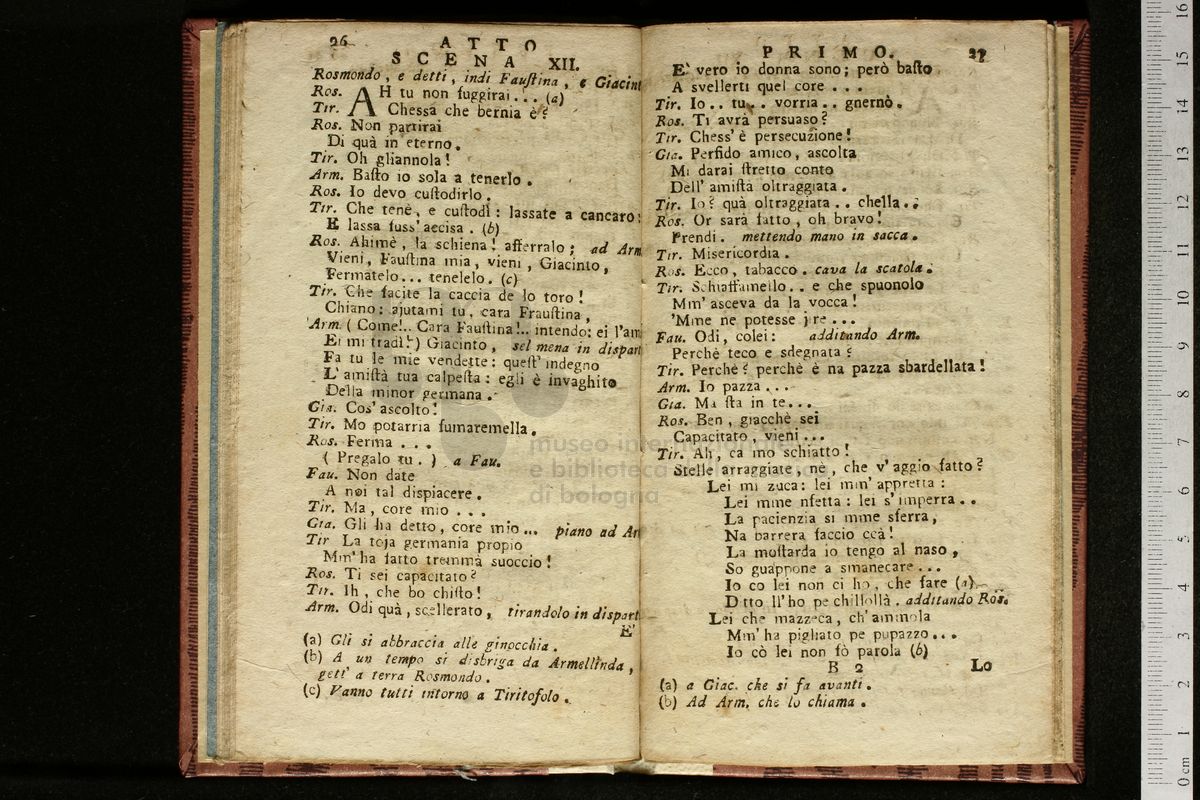 26
ATTO
SCENA XII.
Rosmondo, e detti, indi Fauſtina, e Giacint
Ros. AH tu non fuggirai... (a)
Tir. Chessa che bernia è?
Ros. Non partirai
Di quà in eterno.
Tir. Oh gliannola!
Arm. Baſto io sola a tenerlo.
Ros. Io devo cuſtodirlo.
Tir. Che tenè, e cuſtodì: lassate a cancaro:
E lassa fuss' aecisa. (b)
Ros. Ahimè, la schiena! afferralo; ad Arm
Vieni, Fauſtina mia, vieni, Giacinto,
Fermatelo... tenelelo. (c)
Tir. Che facite la caccia de lo toro!
Chiano: ajutami tu, cara Frauſtina,
Arm. (Come!.. Cara Fauſtina!.. intendo: ei l'am
Ei mi tradì!) Giacinto, sel mena in dispart
Fa tu le mie vendette: queſt' indegno
L'amiſtà tua calpeſta: egli è invaghito
Della minor germana.
Gia. Cos' ascolto!
Tir. Mo potarria fumaremella.
Ros. Ferma...
(Pregalo tu.) a Fau.
Fau. Non date
A noi tal dispiacere.
Tir. Ma, core mio...
Gia. Gli ha detto, core mio... piano ad Ar
Tir La toja germania propio
Mm' ha fatto tremmà suoccio!
Ros. Ti sei capacitato?
Tir. Ih, che bo chiſto!
Arm. Odi quà, scellerato, tirandolo in dispart
E'
(a) Gli si abbraccia alle ginocchia.
(b) A un tempo si disbriga da Armellinda,
gett' a terra Rosmondo.
(c) Vanno tutti intorno a Tiritofolo.
PRIMO. 27
E' vero io donna sono; però baſto
A svellerti quel core...
Tir. Io.. tu.. vorria.. gnernò.
Ros. Ti avrà persuaso?
Tir. Chess' è persecuzione!
Gia. Perfido amico, ascolta
Mi darai ſtretto conto
Dell' amiſtà oltraggiata.
Tir. Io? quà oltraggiata.. chella..
Ros. Or sarà fatto, oh bravo!
Prendi. mettendo mano in sacca.
Tir. Misericordia.
Ros. Ecco, tabacco. cava la scatola.
Tir. Schiaffamello.. e che spuonolo
Mm' asceva da la vocca!
'Mme ne potesse jre...
Fau. Odi, colei: additando Arm.
Perchè teco e sdegnata?
Tir. Perchè? perchè è na pazza sbardellata!
Arm. Io pazza...
Gia. Ma ſta in te...
Ros. Ben, giacchè sei
Capacitato, vieni...
Tir. Ah, ca mo schiatto!
Stelle arraggiate, nè, che v' aggio fatto?
Lei mi zuca: lei mm' appretta:
Lei mme nfetta: lei s' imperra..
La pacienzia si mme sferra,
Na barrera faccio ccà!
La moſtarda io tengo al naso,
So guappone a smanecare...
Io co lei non ci ho, che fare (a)
Ditto ll' ho pe chillollà. additando Ros.
Lei che mazzeca, ch' ammola
Mm' ha pigliato pe pupazzo...
Io cò lei non fò parola (b)
B 2
Lo
(a) a Giac. che si fa avanti.
(b) Ad Arm. che lo chiama.
museo internazionale
e biblioteca
di bologna
0 cm 1 2 3 4 5 6 7 8 9 10 11 12 13 14 15 16